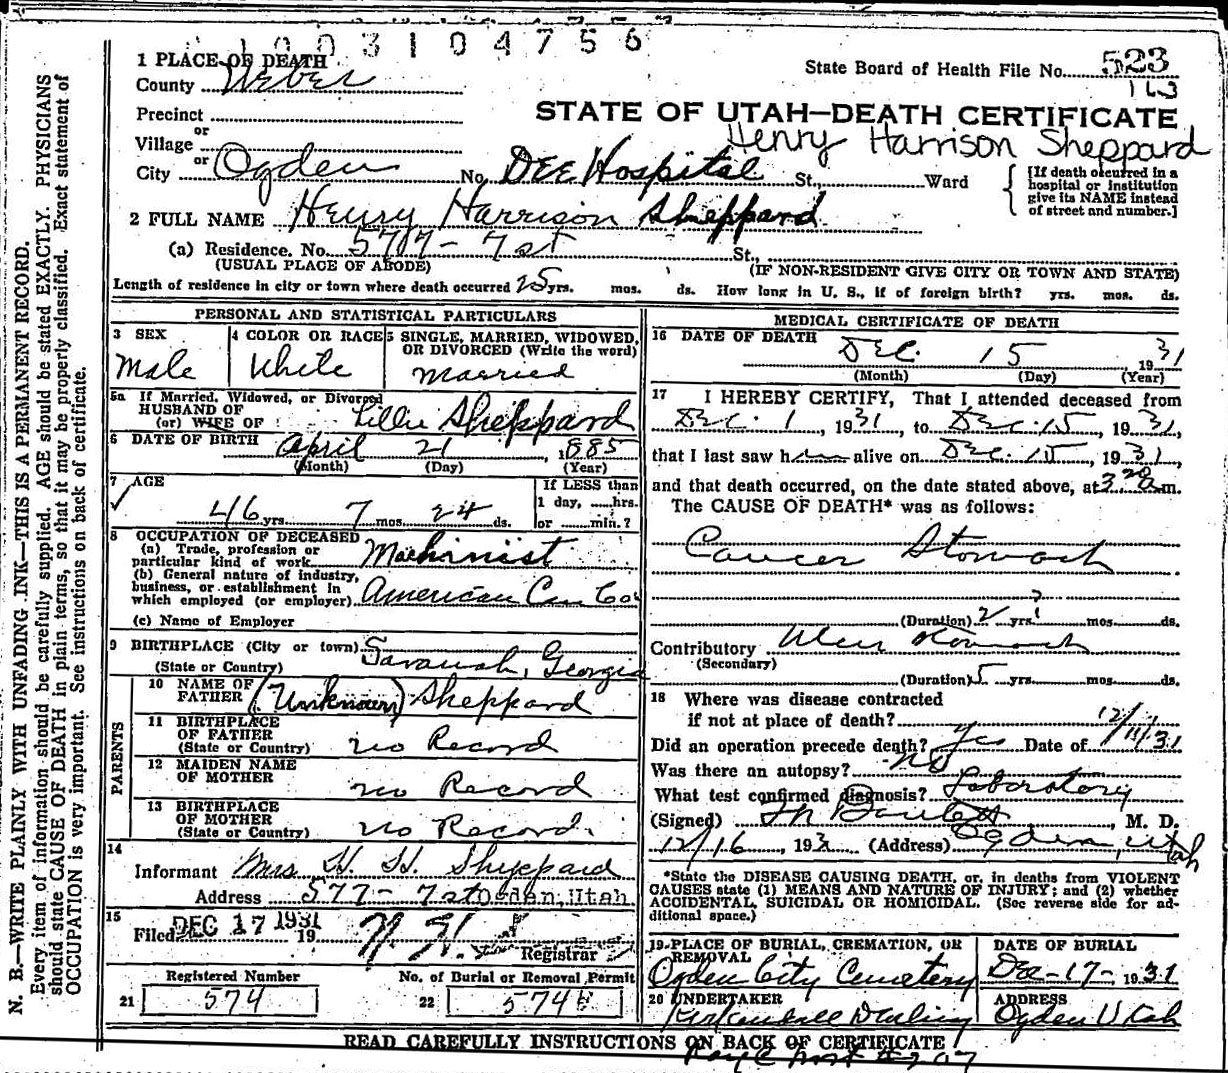 1003104756
1 PLACE OF DEATH
County Weber
State Board of Health File No. 523
163
Precinct
STATE OF UTAH—DEATH CERTIFICATE
or
Village
Henry Harrison Sheppard
or
City Ogden No. DEE Hospital St., Ward
[If death occurred in a hospital or institution give its NAME instead of street and number.]
2 FULL NAME Henry Harrison Sheppard
(a) Residence. No. 577 - 7 st St.,
(USUAL PLACE OF ABODE) (IF NON-RESIDENT GIVE CITY OR TOWN AND STATE)
Length of residence in city or town where death occurred 25 yrs. mos. ds. How long in U. S., if of foreign birth? yrs. mos. ds.
PERSONAL AND STATISTICAL PARTICULARS
3 SEX
Male
4 COLOR OR RACE
White
5 SINGLE, MARRIED, WIDOWED,
OR DIVORCED (Write the word)
Married
5a If Married, Widowed, or Divorced
HUSBAND OF
(or) WIFE OF Lillie Sheppard
6 DATE OF BIRTH April 21, 1885
(Month) (Day) (Year)
7 AGE
46 yrs. 7 mos. 24 ds.
If LESS than
1 day, hrs.
or min.?
8 OCCUPATION OF DECEASED
(a) Trade, profession or
particular kind of work Machinist
(b) General nature of industry,
business, or establishment in
which employed (or employer) American Can Co.
(c) Name of Employer
9 BIRTHPLACE (City or town)
(State or Country) Savanah, Georgia
PARENTS
10 NAME OF
FATHER (Unknown) Sheppard
11 BIRTHPLACE
OF FATHER
(State or Country) no Record
12 MAIDEN NAME
OF MOTHER no Record
13 BIRTHPLACE
OF MOTHER
(State or Country) no Record.
14
Informant Mrs H. H. Sheppard
Address 577 - 7 st Ogden, Utah
15
Filed DEC 17 1931 19
Registrar
Registered Number No. of Burial or Removal Permit
21 574 22 574
MEDICAL CERTIFICATE OF DEATH
16 DATE OF DEATH
DEC. 15 1931
(Month) (Day) (Year)
17 I HEREBY CERTIFY, That I attended deceased from
Dec. 1, 1931, to Dec. 15, 1931,
that I last saw him alive on Dec. 15, 1931,
and that death occurred, on the date stated above, at 3 20 a.m.
The CAUSE OF DEATH* was as follows:
Cancer Stomach
(Duration) 2 yrs. ? mos. ds.
Contributory Ulcer stomach
(Secondary)
(Duration) 5 yrs. mos. ds.
18 Where was disease contracted
if not at place of death?
Did an operation precede death? yes Date of 12/11/31
Was there an autopsy? no
What test confirmed diagnosis? Laboratory
(Signed) M. D.
12/16, 193 (Address) Ogden, Utah
*State the DISEASE CAUSING DEATH, or, in deaths from VIOLENT
CAUSES state (1) MEANS AND NATURE OF INJURY; and (2) whether
ACCIDENTAL, SUICIDAL OR HOMICIDAL. (See reverse side for ad-
ditional space.)
19 PLACE OF BURIAL, CREMATION, OR
REMOVAL
Ogden City Cemetery
DATE OF BURIAL
Dec - 17 - 1931
20 UNDERTAKER
Kirkendall Darling
ADDRESS
Ogden Utah
READ CAREFULLY INSTRUCTIONS ON BACK OF CERTIFICATE
N. B.—WRITE PLAINLY WITH UNFADING INK—THIS IS A PERMANENT RECORD.
Every item of information should be carefully supplied. AGE should be stated EXACTLY. PHYSICIANS
should state CAUSE OF DEATH in plain terms, so that it may be properly classified. Exact statement of
OCCUPATION is very important. See instructions on back of certificate.